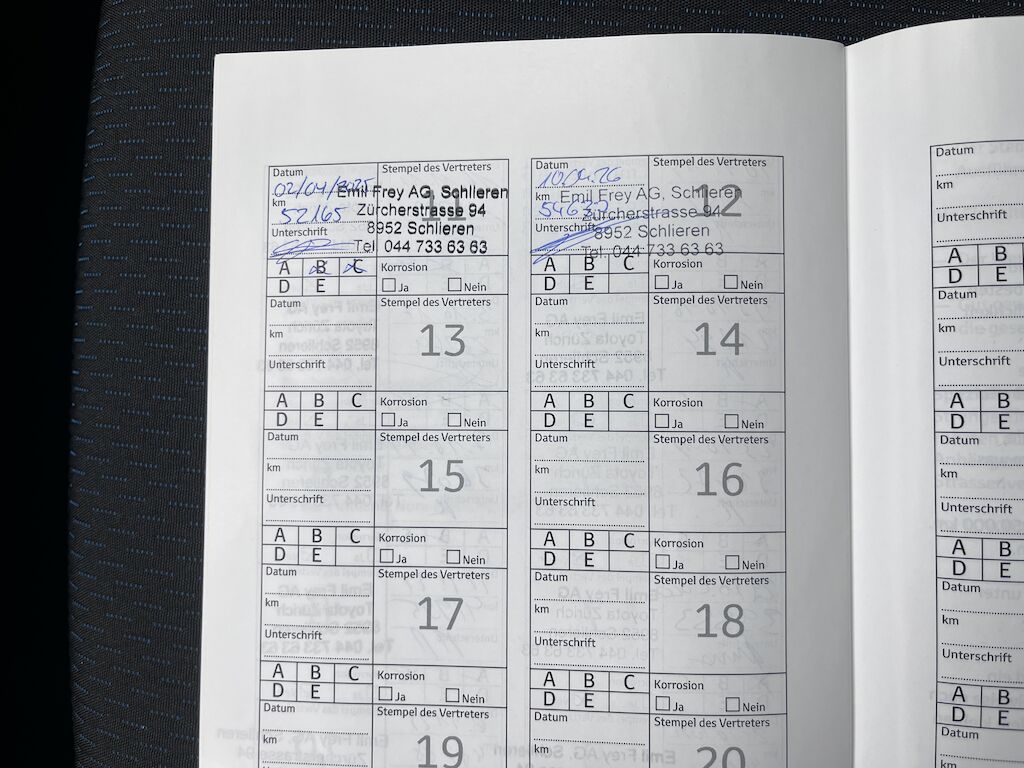 Datum Stempel des Vertreters
02/04/2025 Emil Frey AG, Schlieren
km 11
52165 Zürcherstrasse 94
8952 Schlieren
Unterschrift
Tel. 044 733 63 63
A B C Korrosion
D E Ja Nein
Datum Stempel des Vertreters
10.04.26
km Emil Frey AG, Schlieren
12
Zürcherstrasse 94
8952 Schlieren
Unterschrift
Tel. 044 733 63 63
A B C Korrosion
D E Ja Nein
Datum Stempel des Vertreters
km 13
Unterschrift
A B C Korrosion
D E Ja Nein
Datum Stempel des Vertreters
km 14
Unterschrift
A B C Korrosion
D E Ja Nein
Datum Stempel des Vertreters
km 15
Unterschrift
A B C Korrosion
D E Ja Nein
Datum Stempel des Vertreters
km 16
Unterschrift
A B C Korrosion
D E Ja Nein
Datum Stempel des Vertreters
km 17
Unterschrift
A B C Korrosion
D E Ja Nein
Datum Stempel des Vertreters
km 18
Unterschrift
A B C Korrosion
D E Ja Nein
Datum Stempel des Vertreters
km 19
Datum Stempel des Vertreters
km 20
Datum
km
Unterschrift
A B
D E
Datum
km
Unterschrift
A B
D E
Datum
km
Unterschrift
A B
D E
Datum
km
Unterschrift
A B
D E
Datum
km